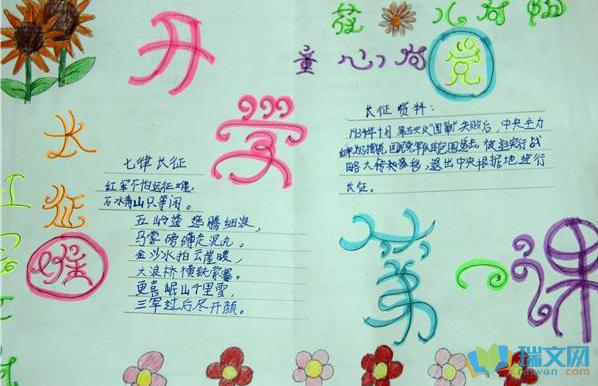 开
学
第
一
课
童心向党
长
征
七律长征
红军不怕远征难,
水青山只等闲。
五岭 腾细浪,
马蒙磅礴走泥丸。
金沙水拍云崖暖,
大浪桥横铁索寒。
更喜岷山千里雪,
三军过后尽开颜。
长征资料:
1934年10月 第五次反"围剿"失败后,中央主力
为摆脱国民党军队包围追击,被迫实行战
略大转移,退出中央根据地,进行
长征。
瑞文网